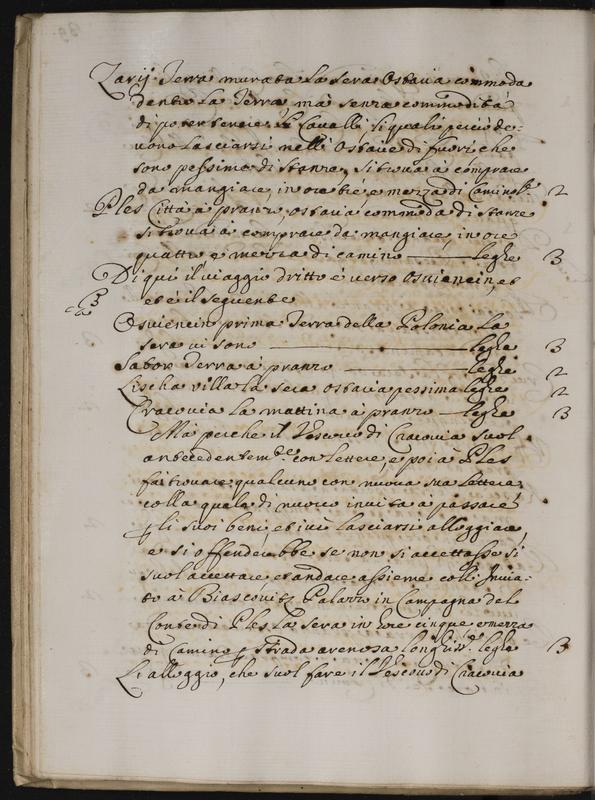 Zarij Terra murata la sera Ostaria commoda
dentro la Terra mà senza commodità
di poter tenere li Cavalli, li quali perciò de-
vono lasciarsi nelli Ostarie di fuori, che
sono pessime di stanze, si trova à comprare
da mangiare, in ore tre e mezza di Camino le 2
Ples Città à pranzo, ostaria commoda di stanze
si trova à comprare da mangiare, in ore
quattro e mezza di camino — leghe 3
Di qui il viaggio dritto è verso Osviencin, et
et è il seguente
Osviencin prima Terra della Polonia la
sera vi sono — leghe 3
Sator Terra à pranzo — leghe 2
Liscka villa la sera ostaria pessima leghe 2
Cracovia la mattina à pranzo — leghe 3
Mà perche il Vescovo di Cracovia suol
antecedentem.te con lettere, e poi à Ples
fa trovare qualcuno con nuova sua lettera,
colla quale di nuovo invita à passare
p li suoi beni, et ivi lasciarsi alloggiare,
e si offenderebbe se non si accettasse si
suol accettare et andare assieme coll' Invia-
to à Biascovitz Palazzo in Campagna del
Conte di Ples la sera in hore cinque e mezza
di Camino p strada arenosa longhiss.e leghe 3
Li alloggio, che suol fare il Vescovo di Cracovia